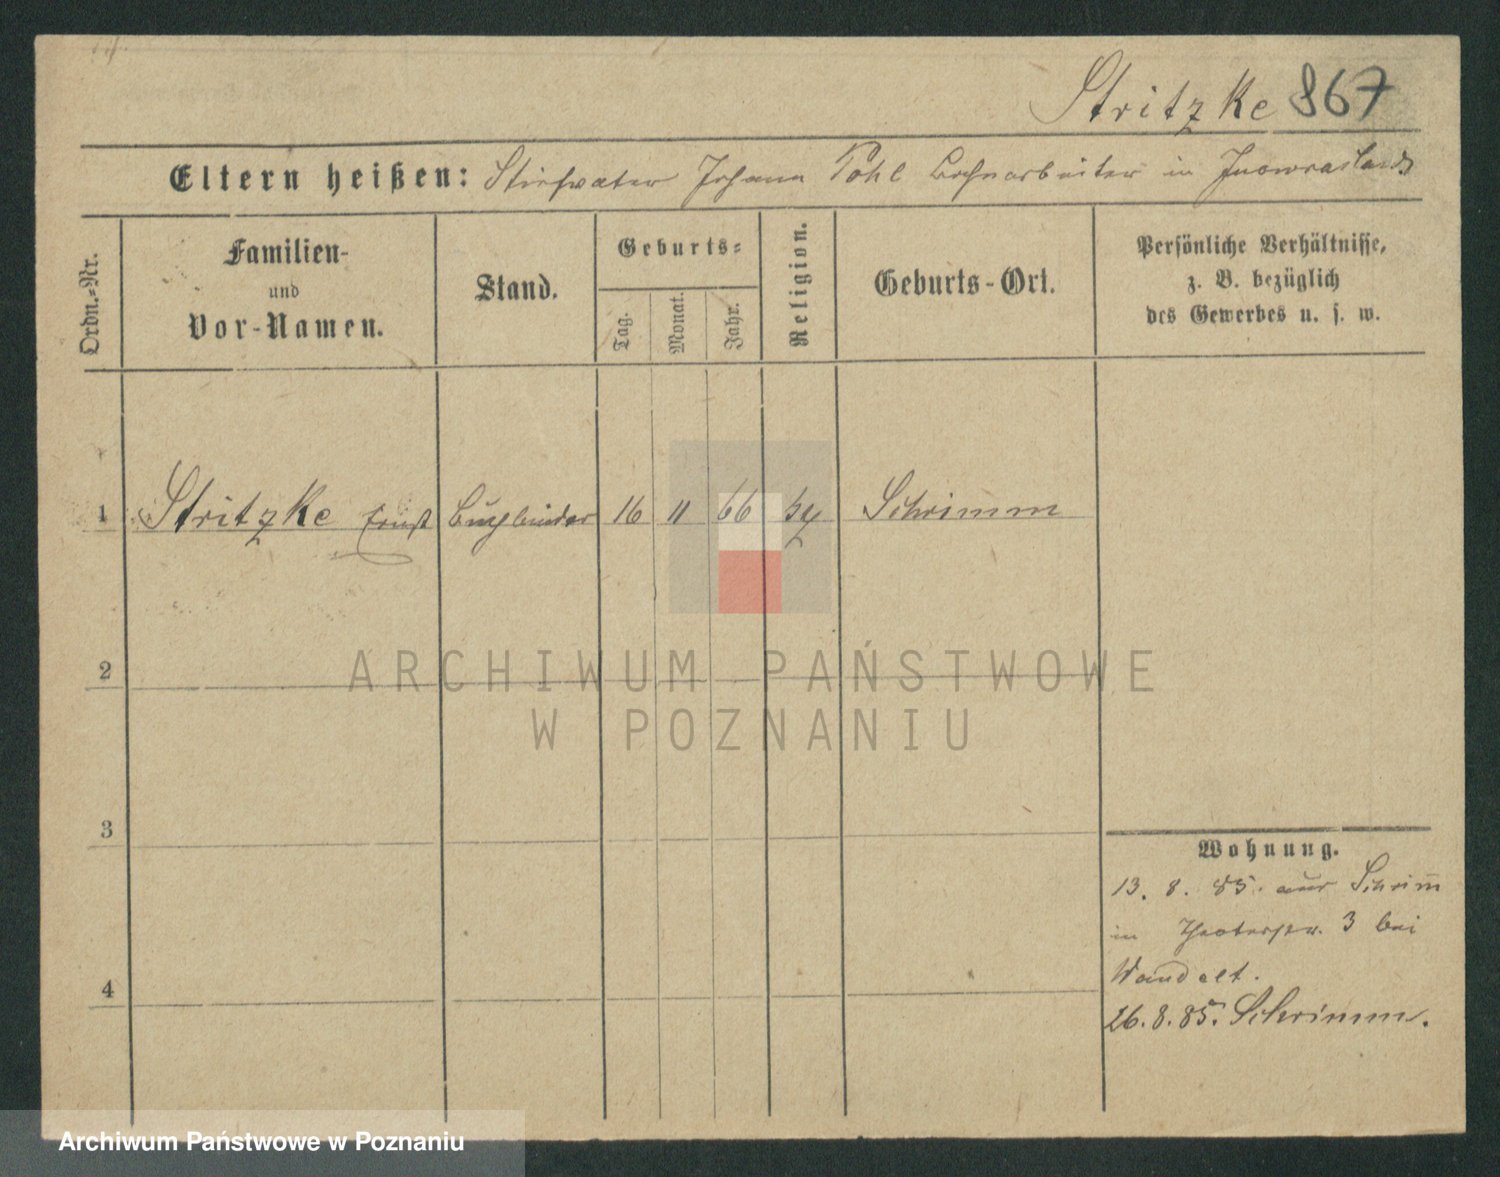 Stritzke 867
Eltern heißen: Stiefvater Johann Pohl Bahnarbeiter in Inowrazlaw
Ordn.-Nr.
Familien-
und
Vor-Namen.
Stand.
Geburts-
Tag.
Monat.
Jahr.
Religion.
Geburts-Ort.
Persönliche Verhältnisse,
z. B. bezüglich
des Gewerbes u. s. w.
1 Stritzke Ernst Buchbinder 16 11 66 Schrimm
2
3
4
Wohnung.
13. 8. 85. aus Schrim̅
in Theaterstr. 3 bei
Wandelt.
26. 8. 85. Schrimm.
ARCHIWUM PAŃSTWOWE
W POZNANIU
Archiwum Państwowe w Poznaniu